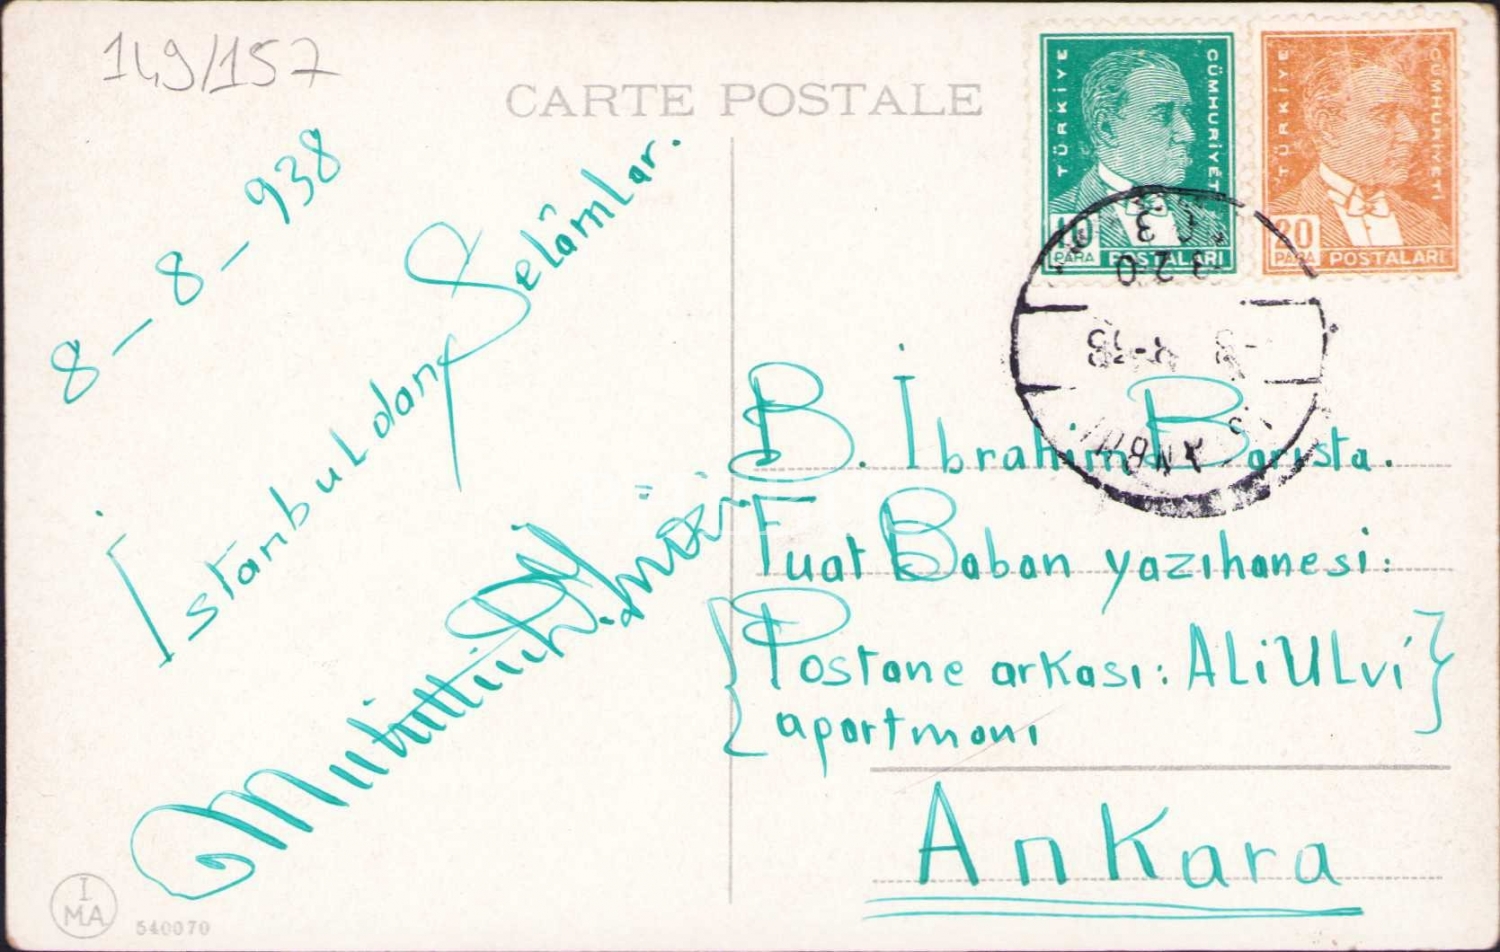 149/157
CARTE POSTALE
TÜRKİYE
CÜMHURİYETİ
10
PARA
POSTALARI
TÜRKİYE
CÜMHURİYETİ
20
PARA
POSTALARI
8-8-938
İstanbuldan Selâmlar.
B. İbrahim Barısta.
Fuat Baban yazıhanesi:
{Postane arkası: ALİ ULvi
apartmanı}
Ankara
I
MA
540070